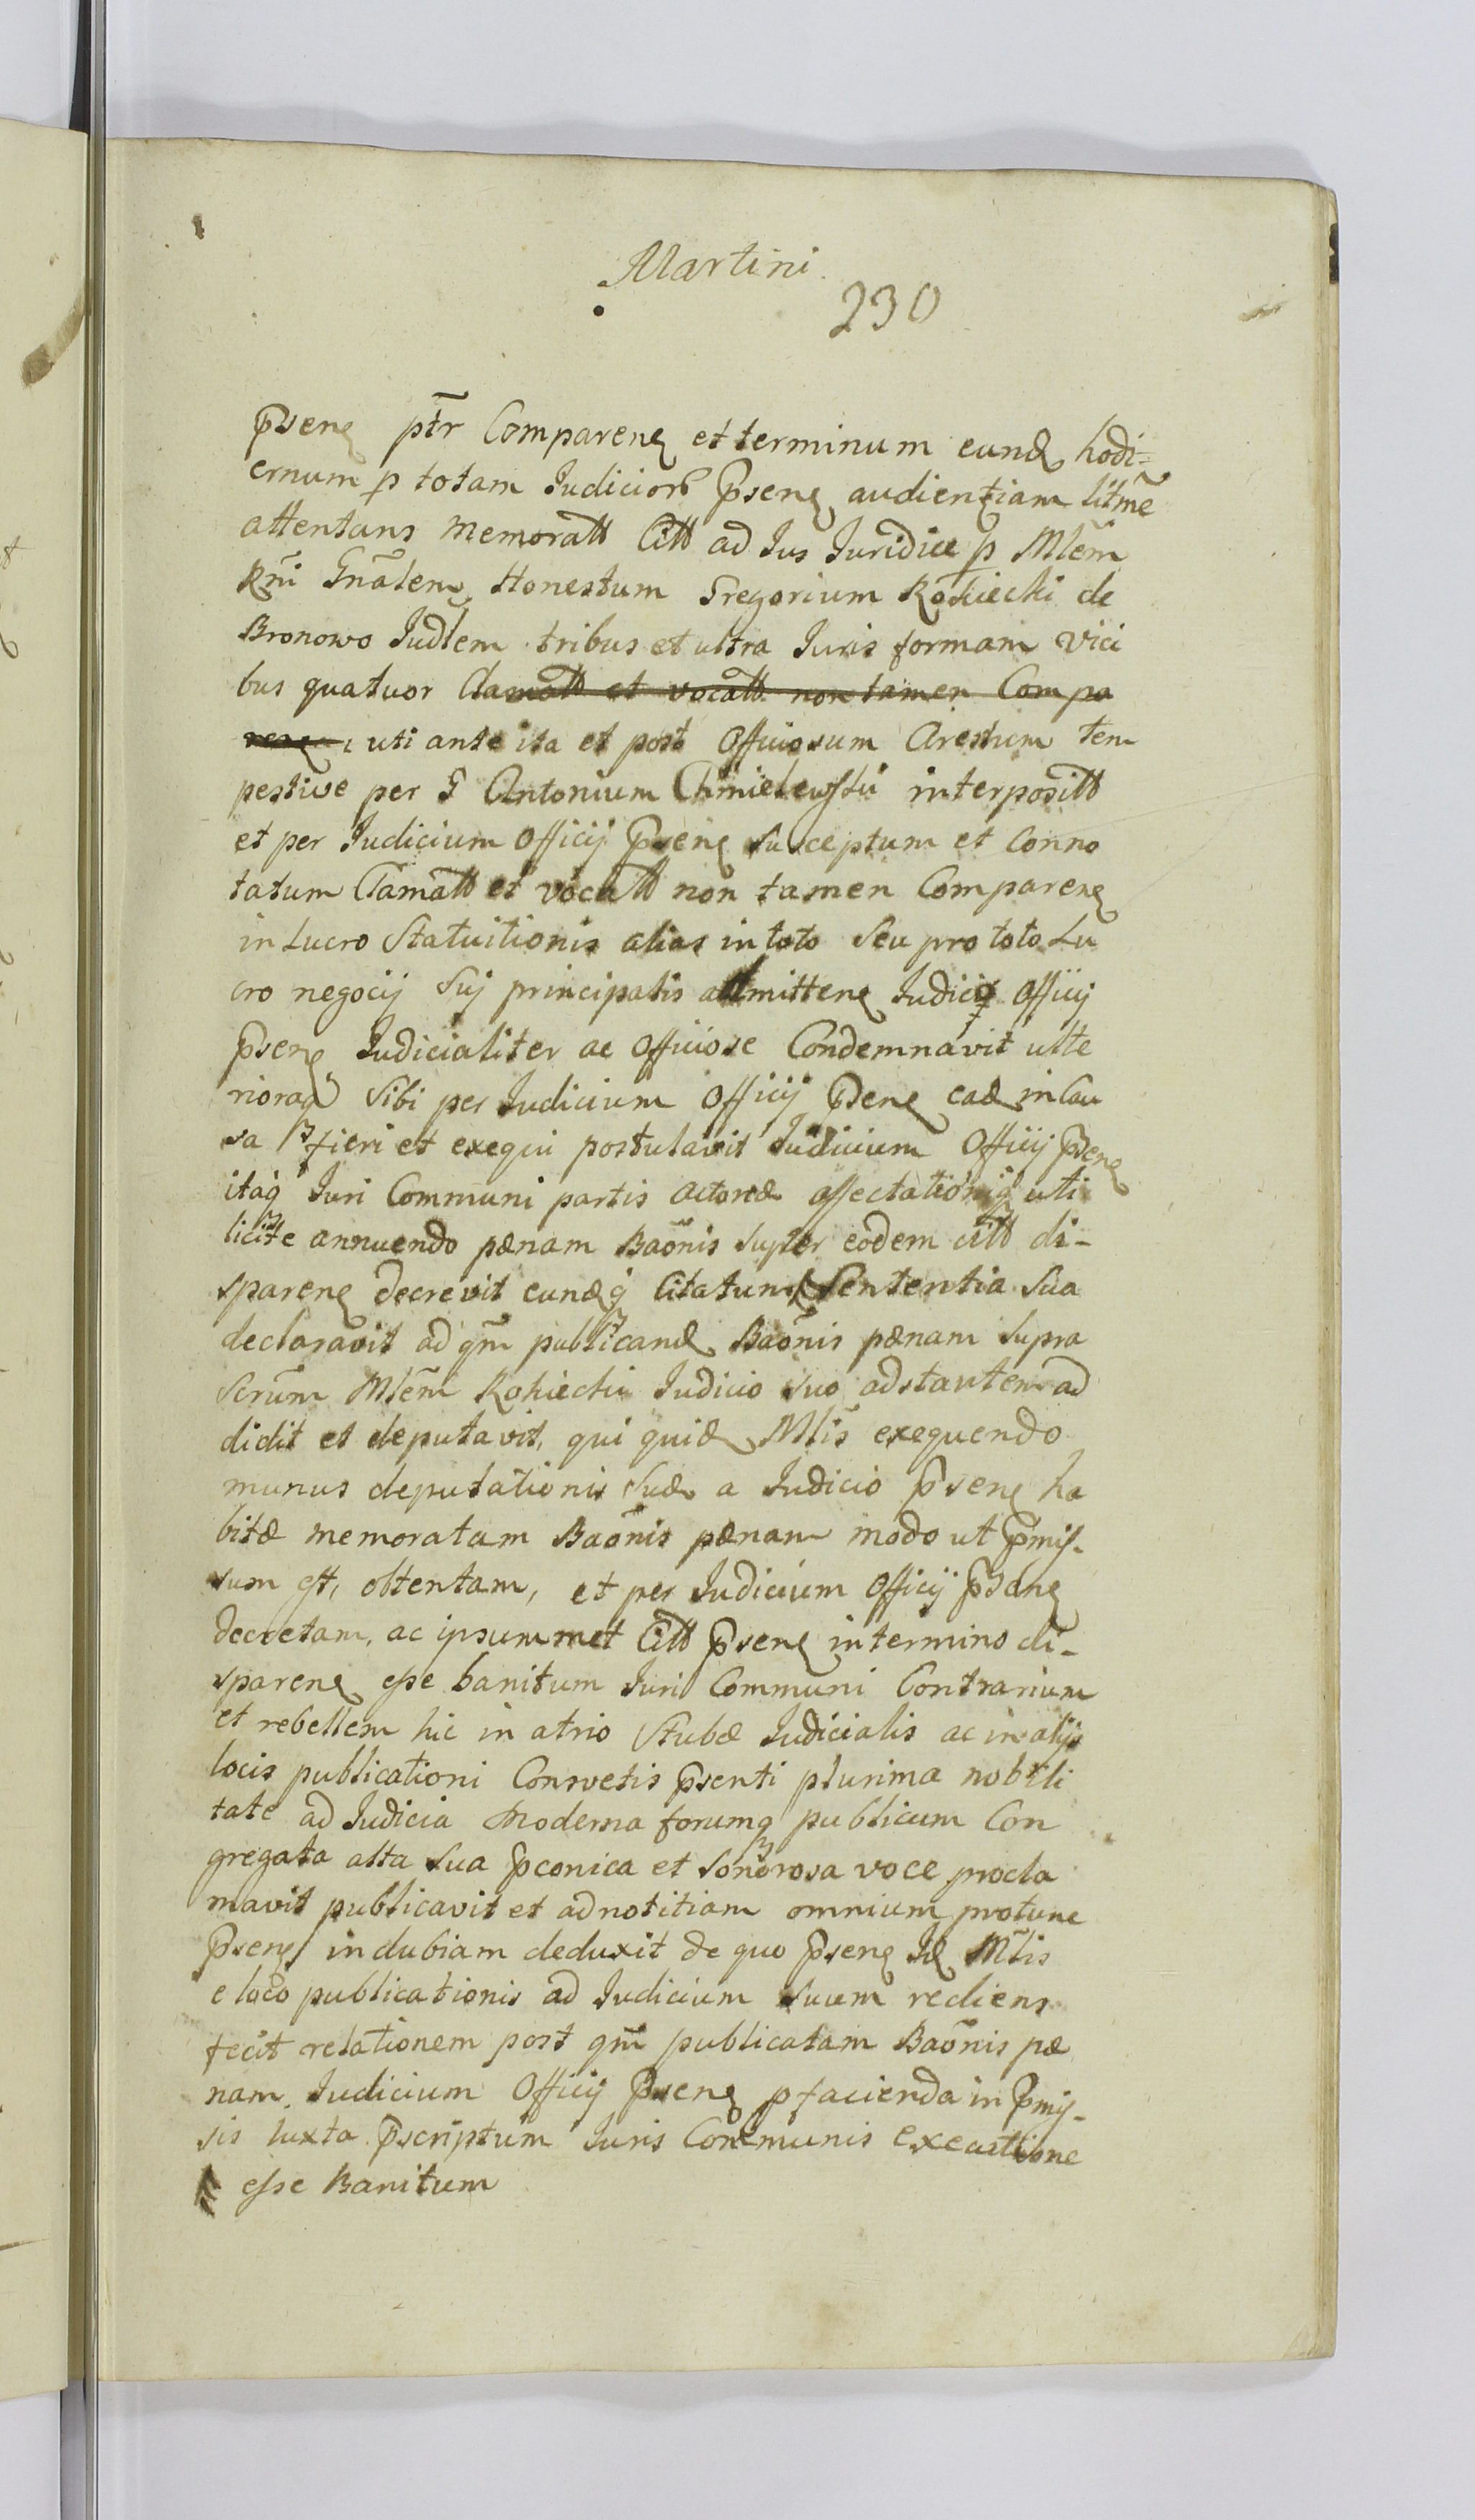 Martini
230
Psens ptr Comparens et terminum eund hodi=
ernum p totam Judicior Psens audientiam litme
attentans memoratt Citt ad Jus Juridice p Mlem
Rni Gnalem Honestum Gregorium Rokicki de
Bronowo Judlem tribus et ultra Juris formam vici
bus quatuor Clamatt et vocatt non tamen Compa
rens uti ante ita et post Officiosum Arestum tem
pestive per G Antonium Chmielewski interpositt
et per Judicium Officij Psens susceptum et Conno
tatum Clamatt et vocatt non tamen Comparens
in Lucro Statuitionis alias in toto Seu pro toto Lu
cro negocij Sui principalis admittens Judicio Officij
Psens Judicialiter ac Officiose Condemnavit ulte
rioraq Sibi per Judicium Officij Psens ead in Cau
sa fieri et exequi postulavit Judicium Officij Psens
itaq Juri Communi partis actoreæ affectationiq uti
licite annuendo pænam Baonis super eodem citt di-
sparens decrevit eundq Citatum Sententia Sua
declaravit ad qm publicand Baonis pænam Supra
Scrum Mlem Rokicki Judicio suo adstantem ad
didit et deputavit, qui quid Mlis exequendo
munus deputationis Suæ a Judicio Psens ha
bitæ memoratam Baonis pænam modo ut Pmis-
sum est, obtentam, et per Judicium Officij Psens
decretam, ac ipsummet Citt Psens in termino di-
sparens esse banitum Juri Communi Contrarium
et rebellem hic in atrio Stubæ Judicialis ac in alijs
locis publicationi Consvetis Psenti plurima nobili
tate ad Judicia Moderna forumq publicum Con
gregata alta Sua Pconica et Sonorosa voce procla
mavit publicavit et ad notitiam omnium protunc
Psens indubiam deduxit de quo Psens Id Mlis
e loco publicationis ad Judicium Suum rediens
fecit relationem post qm publicatam Baonis pæ
nam Judicium Officij Psens p facienda in Pmis-
sis Juxta Pscriptum Juris Communis executione
esse Banitum